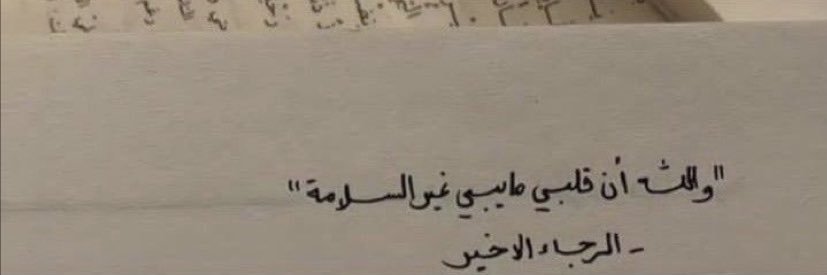 "والله أن قلبي مايبي غير السلامة"
- الرجاء الاخير